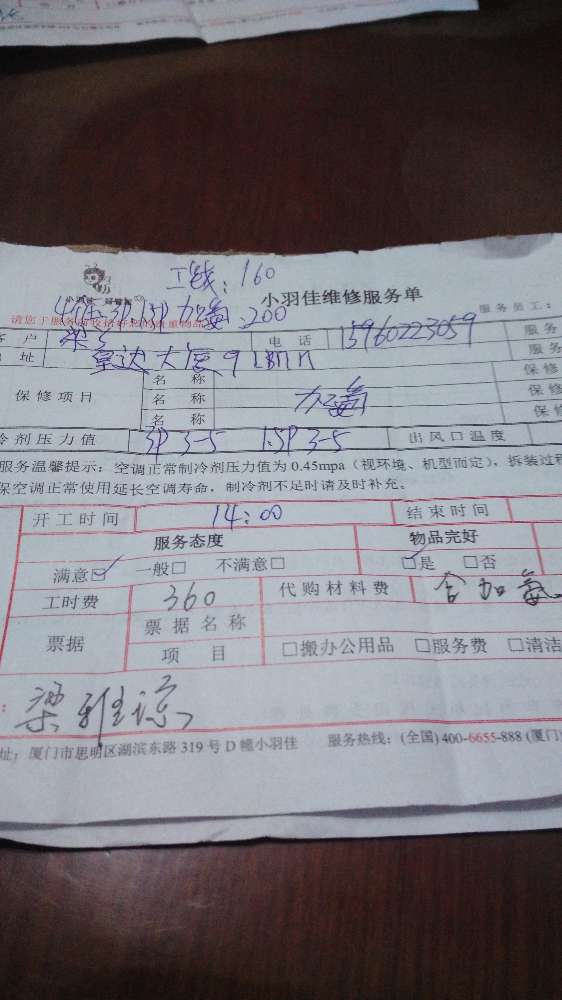 工钱：160
小羽佳维修服务单
加氟：200
服务员工：
户
电 话
15960223059
服务
址
大厦9
服务
保修项目
名 称
保修
名 称
加氟
保修
名 称
保修
冷剂压力值
3P 3-5 1.5P 3-5
出风口温度
服务温馨提示：空调正常制冷剂压力值为0.45mpa（视环境、机型而定），拆装过程
保空调正常使用延长空调寿命，制冷剂不足时请及时补充。
开工时间
14：00
结束时间
服务态度
物品完好
满意☑ 一般□ 不满意□
□是 □否
工时费
360
代购材料费
含加氟
票据
票据名称
项 目
□搬办公用品 □服务费 □清洁
梁雅琼
址：厦门市思明区湖滨东路319号D幢小羽佳 服务热线：(全国)400-6655-888 (厦门)